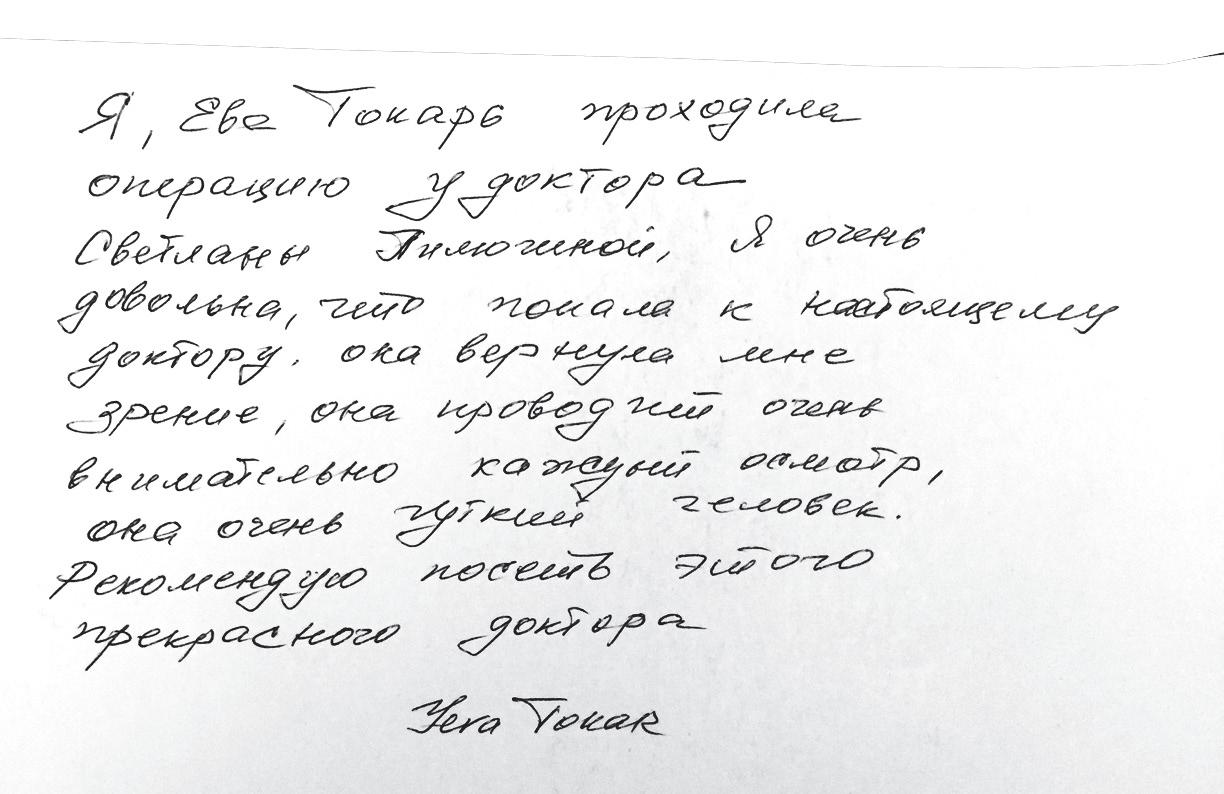 Я, Ева Токарь проходила
операцию у доктора
Светланы Пилюгиной, Я очень
довольна, что попала к настоящему
доктору. она вернула мне
зрение, она проводит очень
внимательно каждый осмотр,
она очень чуткий человек.
Рекомендую посеть этого
прекрасного доктора
Yeva Tokar